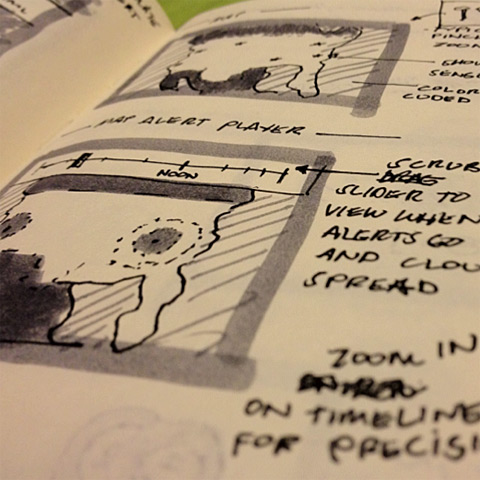 ZOOM
COLOR
CODED
MAP ALERT PLAYER
NOON
SCRUB
SLIDER TO
VIEW WHEN
ALERTS GO
AND CLOU
SPREAD
ZOOM IN
ON TIMELINE
FOR PRECISI